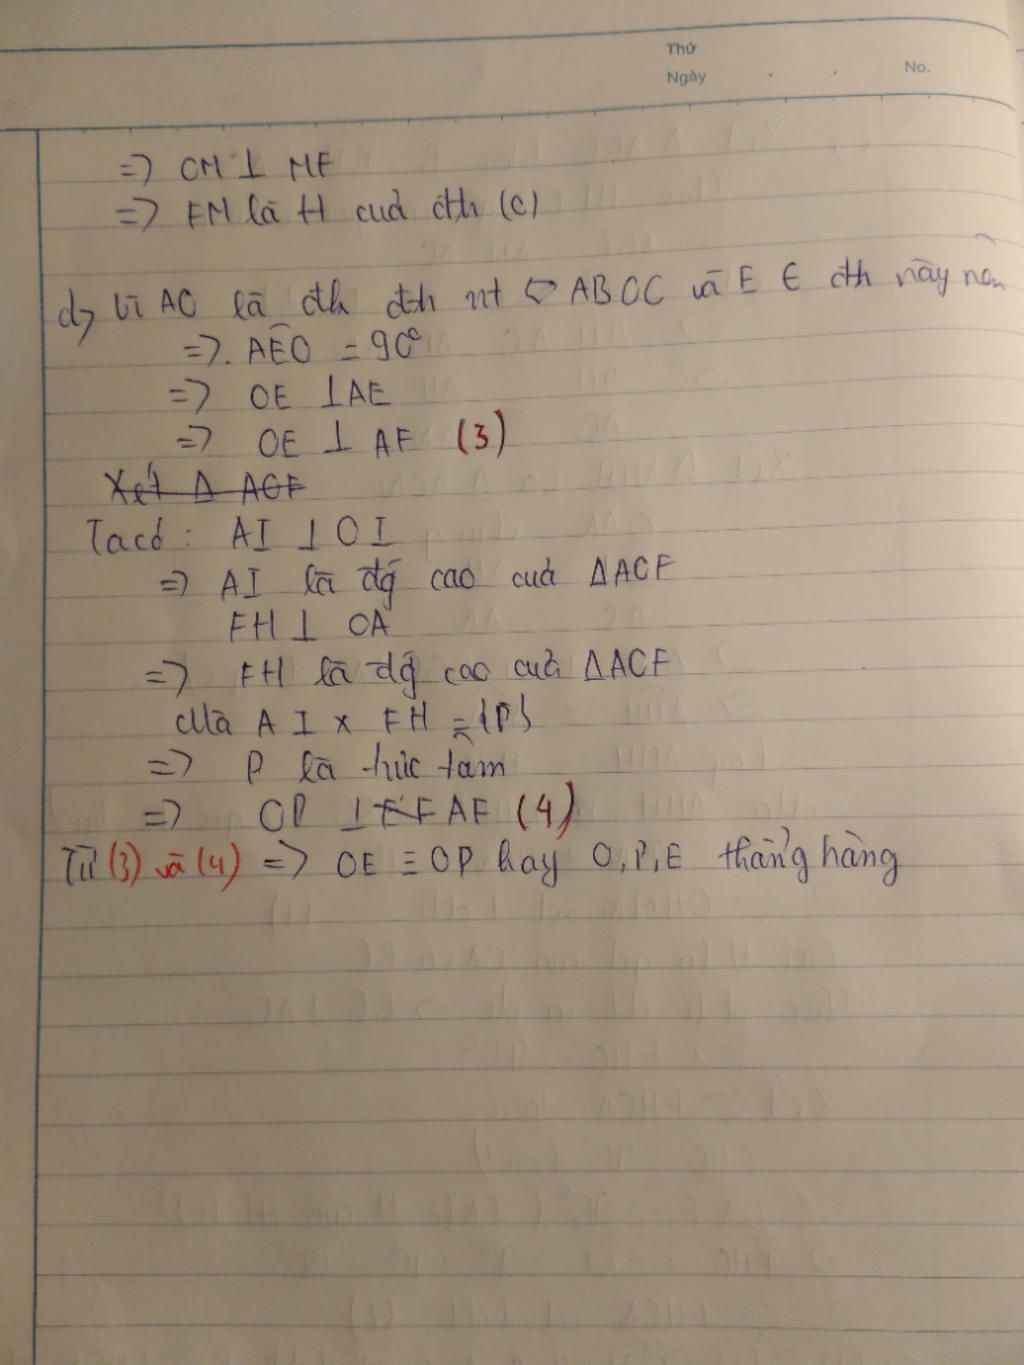 Thứ
Ngày . . No.
=> OM ⊥ MF
=> FM là tt cuả đth (O)
d, Vì AO là đth đth nt ABOC và E ∈ đth này nên
=>. AÊO = 90°
=> OE ⊥ AE
=> OE ⊥ AF (3)
Xét Δ AOF
Ta có : AI ⊥ OI
=> AI là đg cao cuả ΔAOF
FH ⊥ OA
=> FH là đg cao cuả ΔAOF
Mà AI x FH = {P}
=> P là trực tâm
=> OP ⊥ AF (4)
Từ (3) và (4) => OE ≡ OP hay O, P, E thẳng hàng